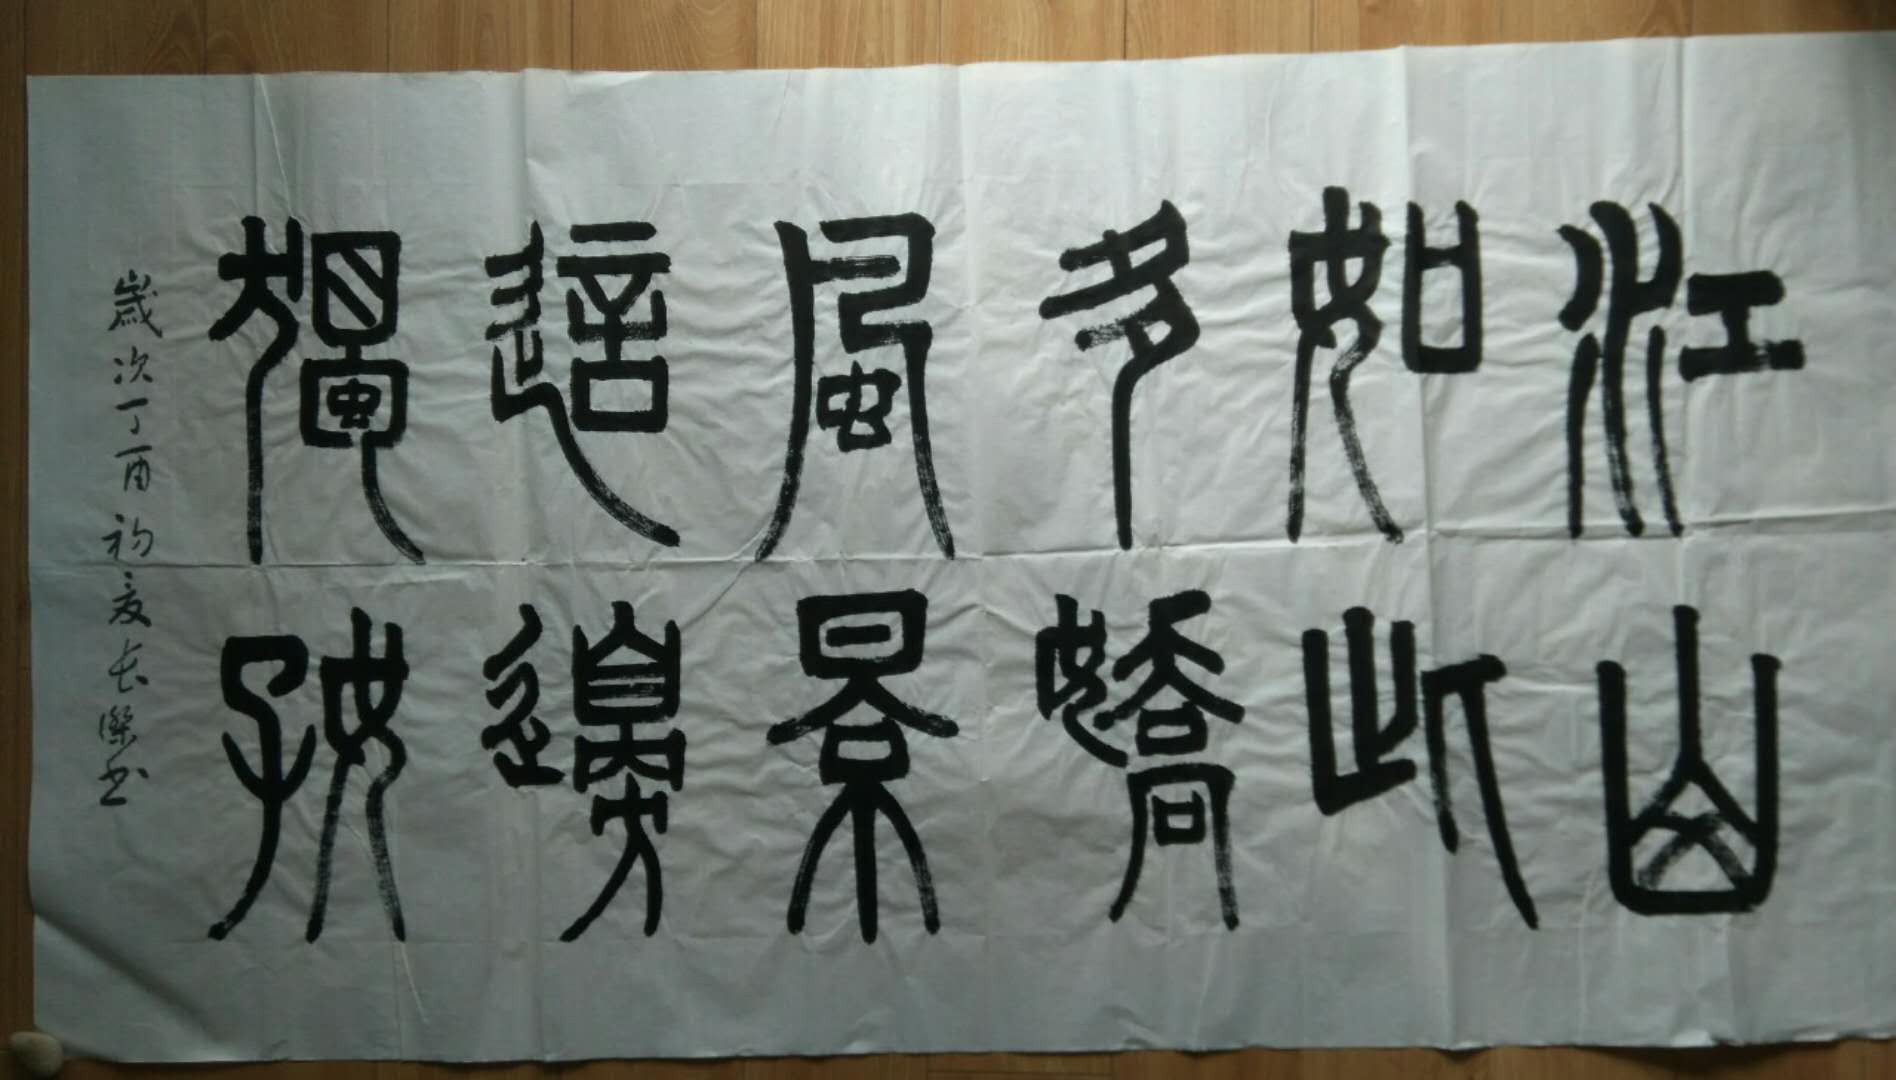 江山
如此
多嬌
風景
這邊
獨好
歲次丁酉初夏长书